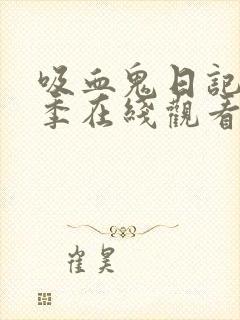 吸血鬼日記
季在綫觀看
崔昊